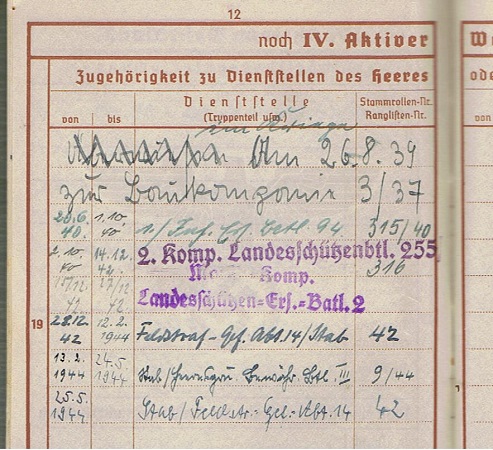 12
noch IV. Aktiver
We
Zugehörigkeit zu Dienststellen des Heeres
ode
von bis Dienststelle (Truppenteil usw.) Stammrollen-Nr. Ranglisten-Nr.
von
im Kriege
Am 26.8.39
zur Baukompanie 3/37
20.6. 40. 1.10 40 1./Inf. Ers. Batl. 94. 315/40
2.10. 40 14.12. 42. 2. Komp. Landesschützenbtl. 255 316
Komp.
42. 42. Landesschützen-Ers.-Batl. 2
19
28.12. 42 12.2. 1944 Feldstraf-Gef. Abt. 14/Stab 42
13.2. 1944 24.5. 1944 Btl. III 9/44
25.5. 1944 Stab/Feldstr.-Gef.-Abt. 14 42